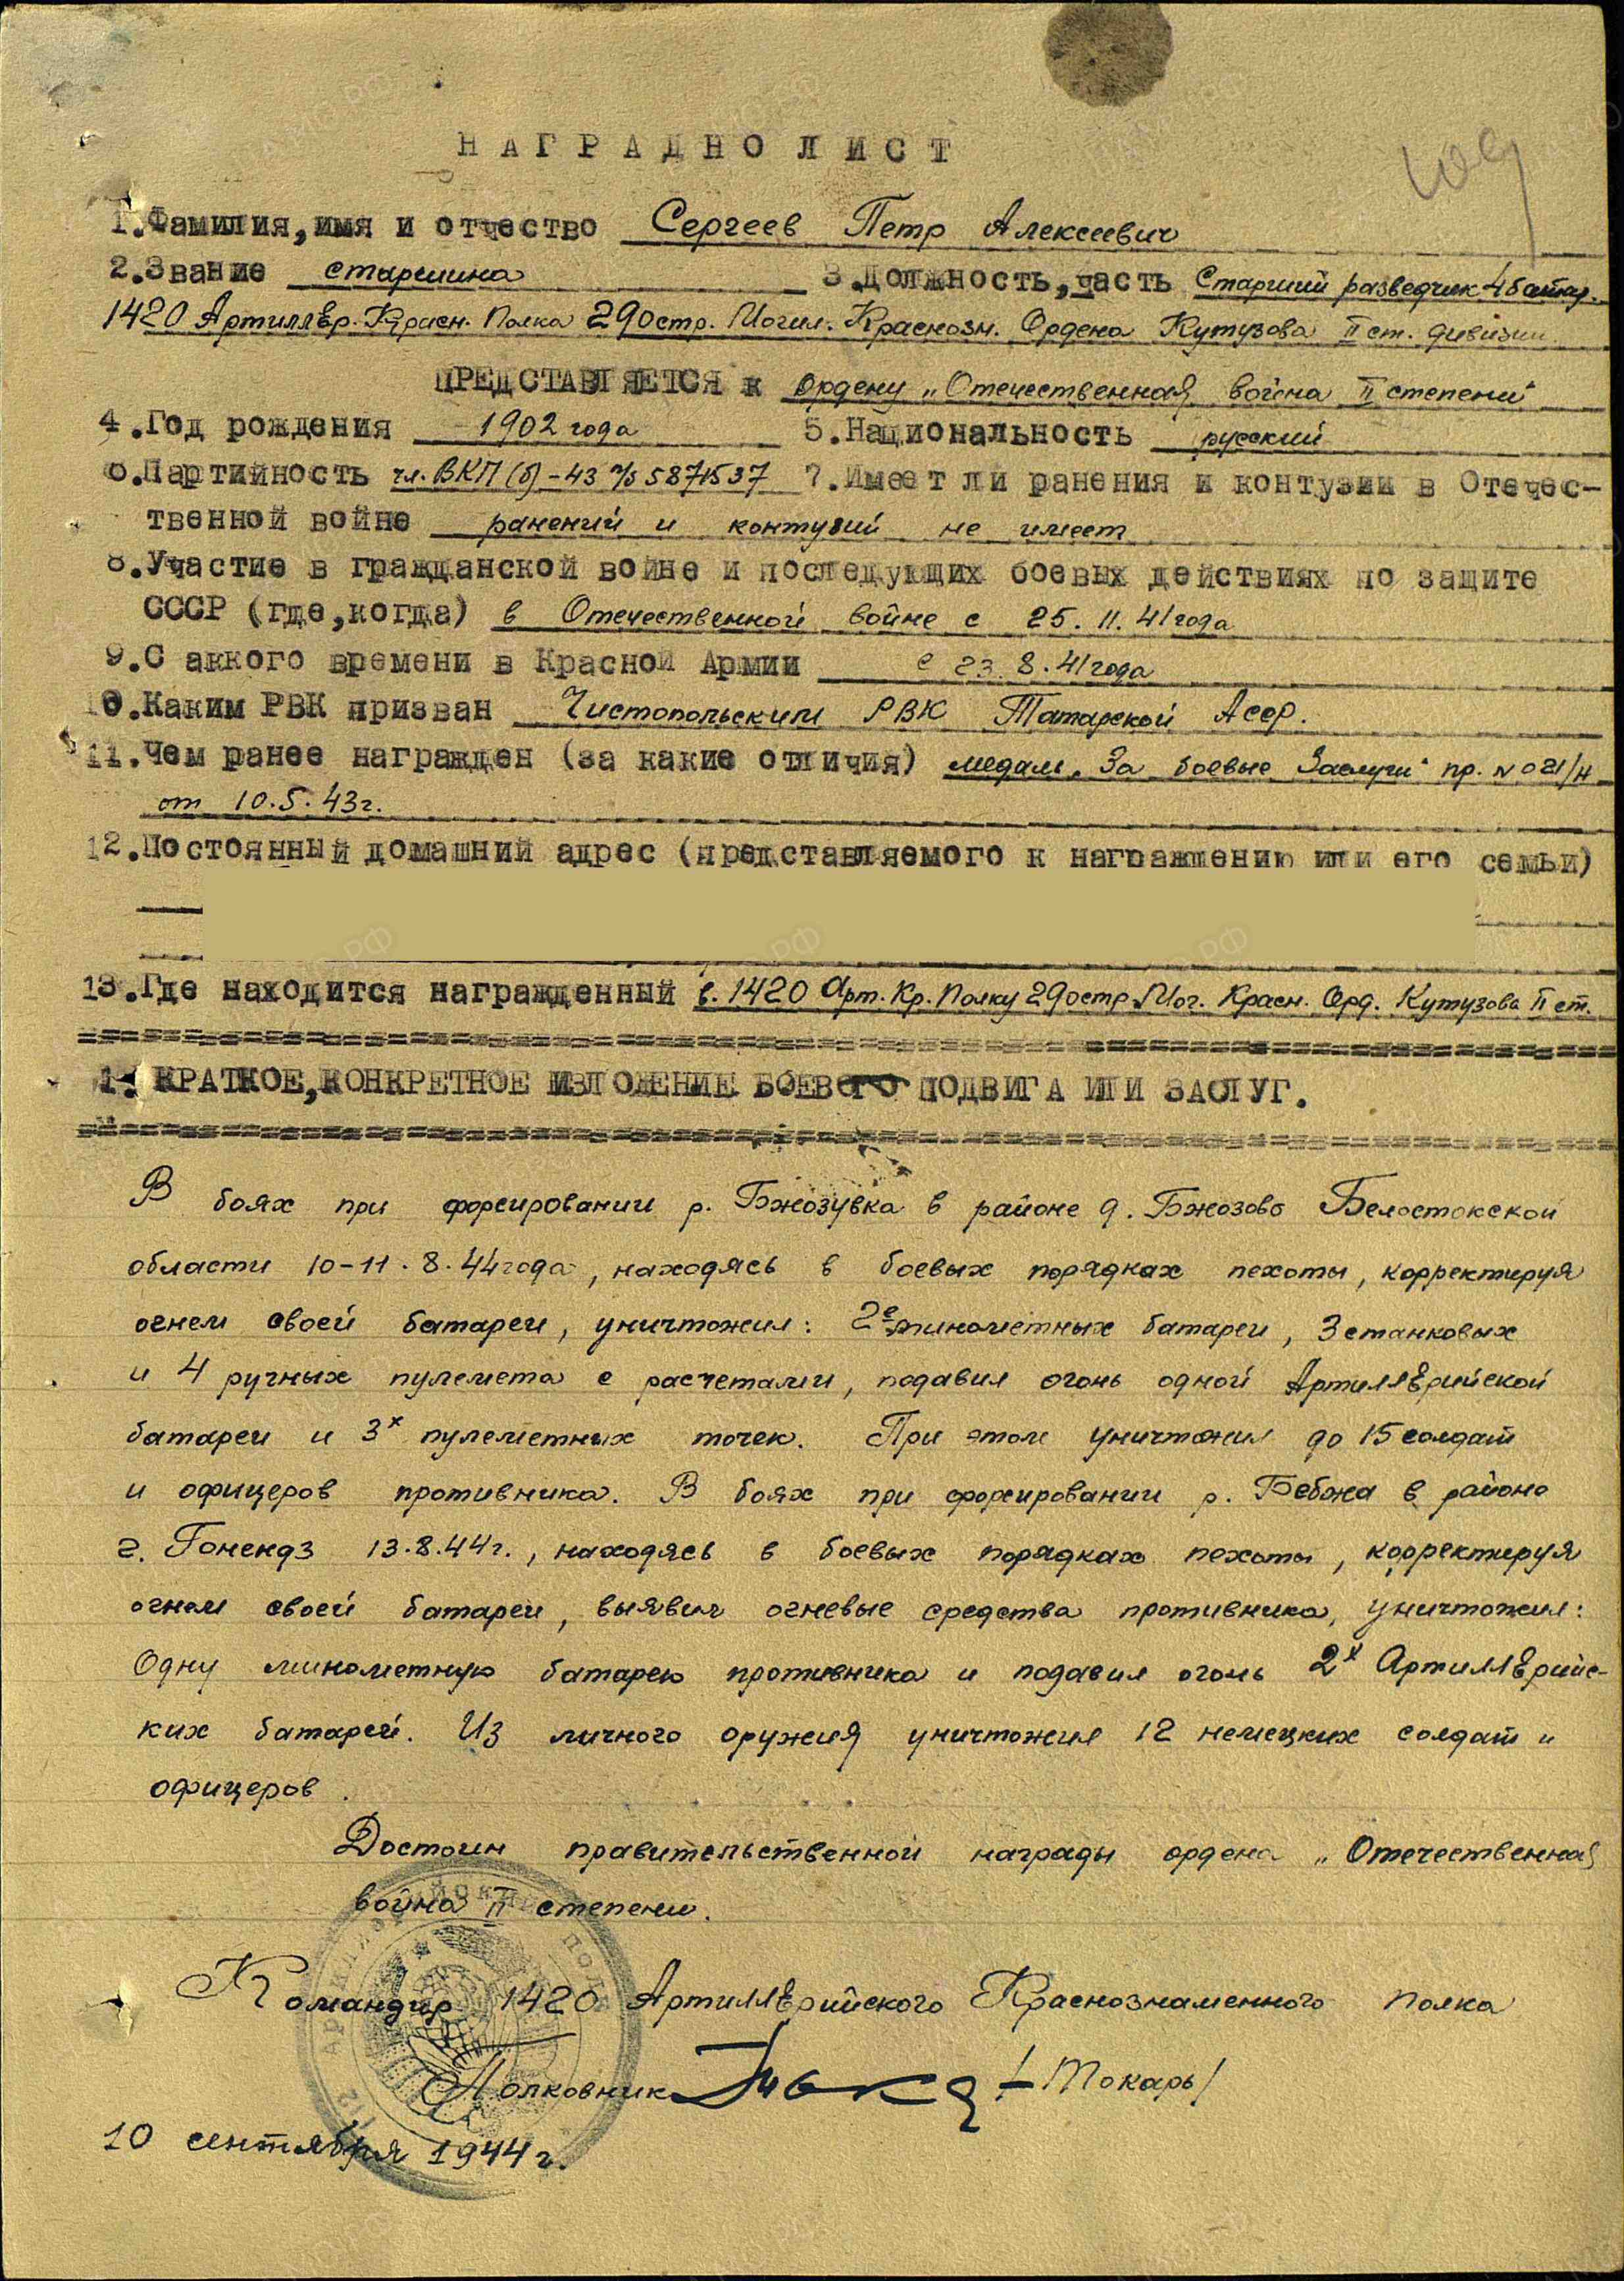 НАГРАДНО ЛИСТ
109
1.Фамилия,имя и отчество Сергеев Петр Алексеевич
2.Звание старшина 3.Должность,часть Старший разведчик 4 батар.
1420 Артиллер. Красн. Полка 290 стр. Могил. Краснозн. Ордена Кутузова II ст. дивизии
ПРЕДСТАВЛЯЕТСЯ к ордену „Отечественная война II степени"
4.Год рождения 1902 года 5.Национальность русский
6.Партийность чл. ВКП(б)-43 5871537 7.Имеет ли ранения и контузии в Отечес-
твенной войне ранений и контузий не имеет
8.Участие в гражданской войне и последующих боевых действиях по защите
СССР (где,когда) в Отечественной войне с 25.11.41 года
9.С аккого времени в Красной Армии с 23.8.41 года
10.Каким РВК призван Чистопольским РВК Татарской Асср.
11.Чем ранее награжден (за какие отличия) медаль „За боевые Заслуги" пр. N 021/н
от 10.5.43г.
12.Постоянный домашний адрес (представляемого к награждению или его семьи)
13.Где находится награжденный в. 1420 Арт. Кр. Полку 290 стр. Мог. Красн. Орд. Кутузова II ст.
1. КРАТКОЕ,КОНКРЕТНОЕ ИЗЛОЖЕНИЕ БОЕВОГО ПОДВИГА ИЛИ ЗАСЛУГ.
В боях при форсировании р. Бжозувка в районе д. Бжозово Белостокской
области 10-11.8.44 года, находясь в боевых порядках пехоты, корректируя
огнем своей батареи, уничтожил: 2е минометных батареи, 3 станковых
и 4 ручных пулемета с расчетами, подавил огонь одной Артиллерийской
батареи и 3х пулеметных точек. При этом уничтожил до 15 солдат
и офицеров противника. В боях при форсировании р. Бебжа в районе
г. Гонендз 13.8.44г., находясь в боевых порядках пехоты, корректируя
огнем своей батареи, выявил огневые средства противника, уничтожил:
Одну минометную батарею противника и подавил огонь 2х Артиллерийс-
ких батарей. Из личного оружия уничтожил 12 немецких солдат и
офицеров.
Достоин правительственной награды ордена „Отечественная
война II степени.
Командир 1420 Артиллерийского Краснознаменного полка
Полковник /Токарь/
10 сентября 1944 г.